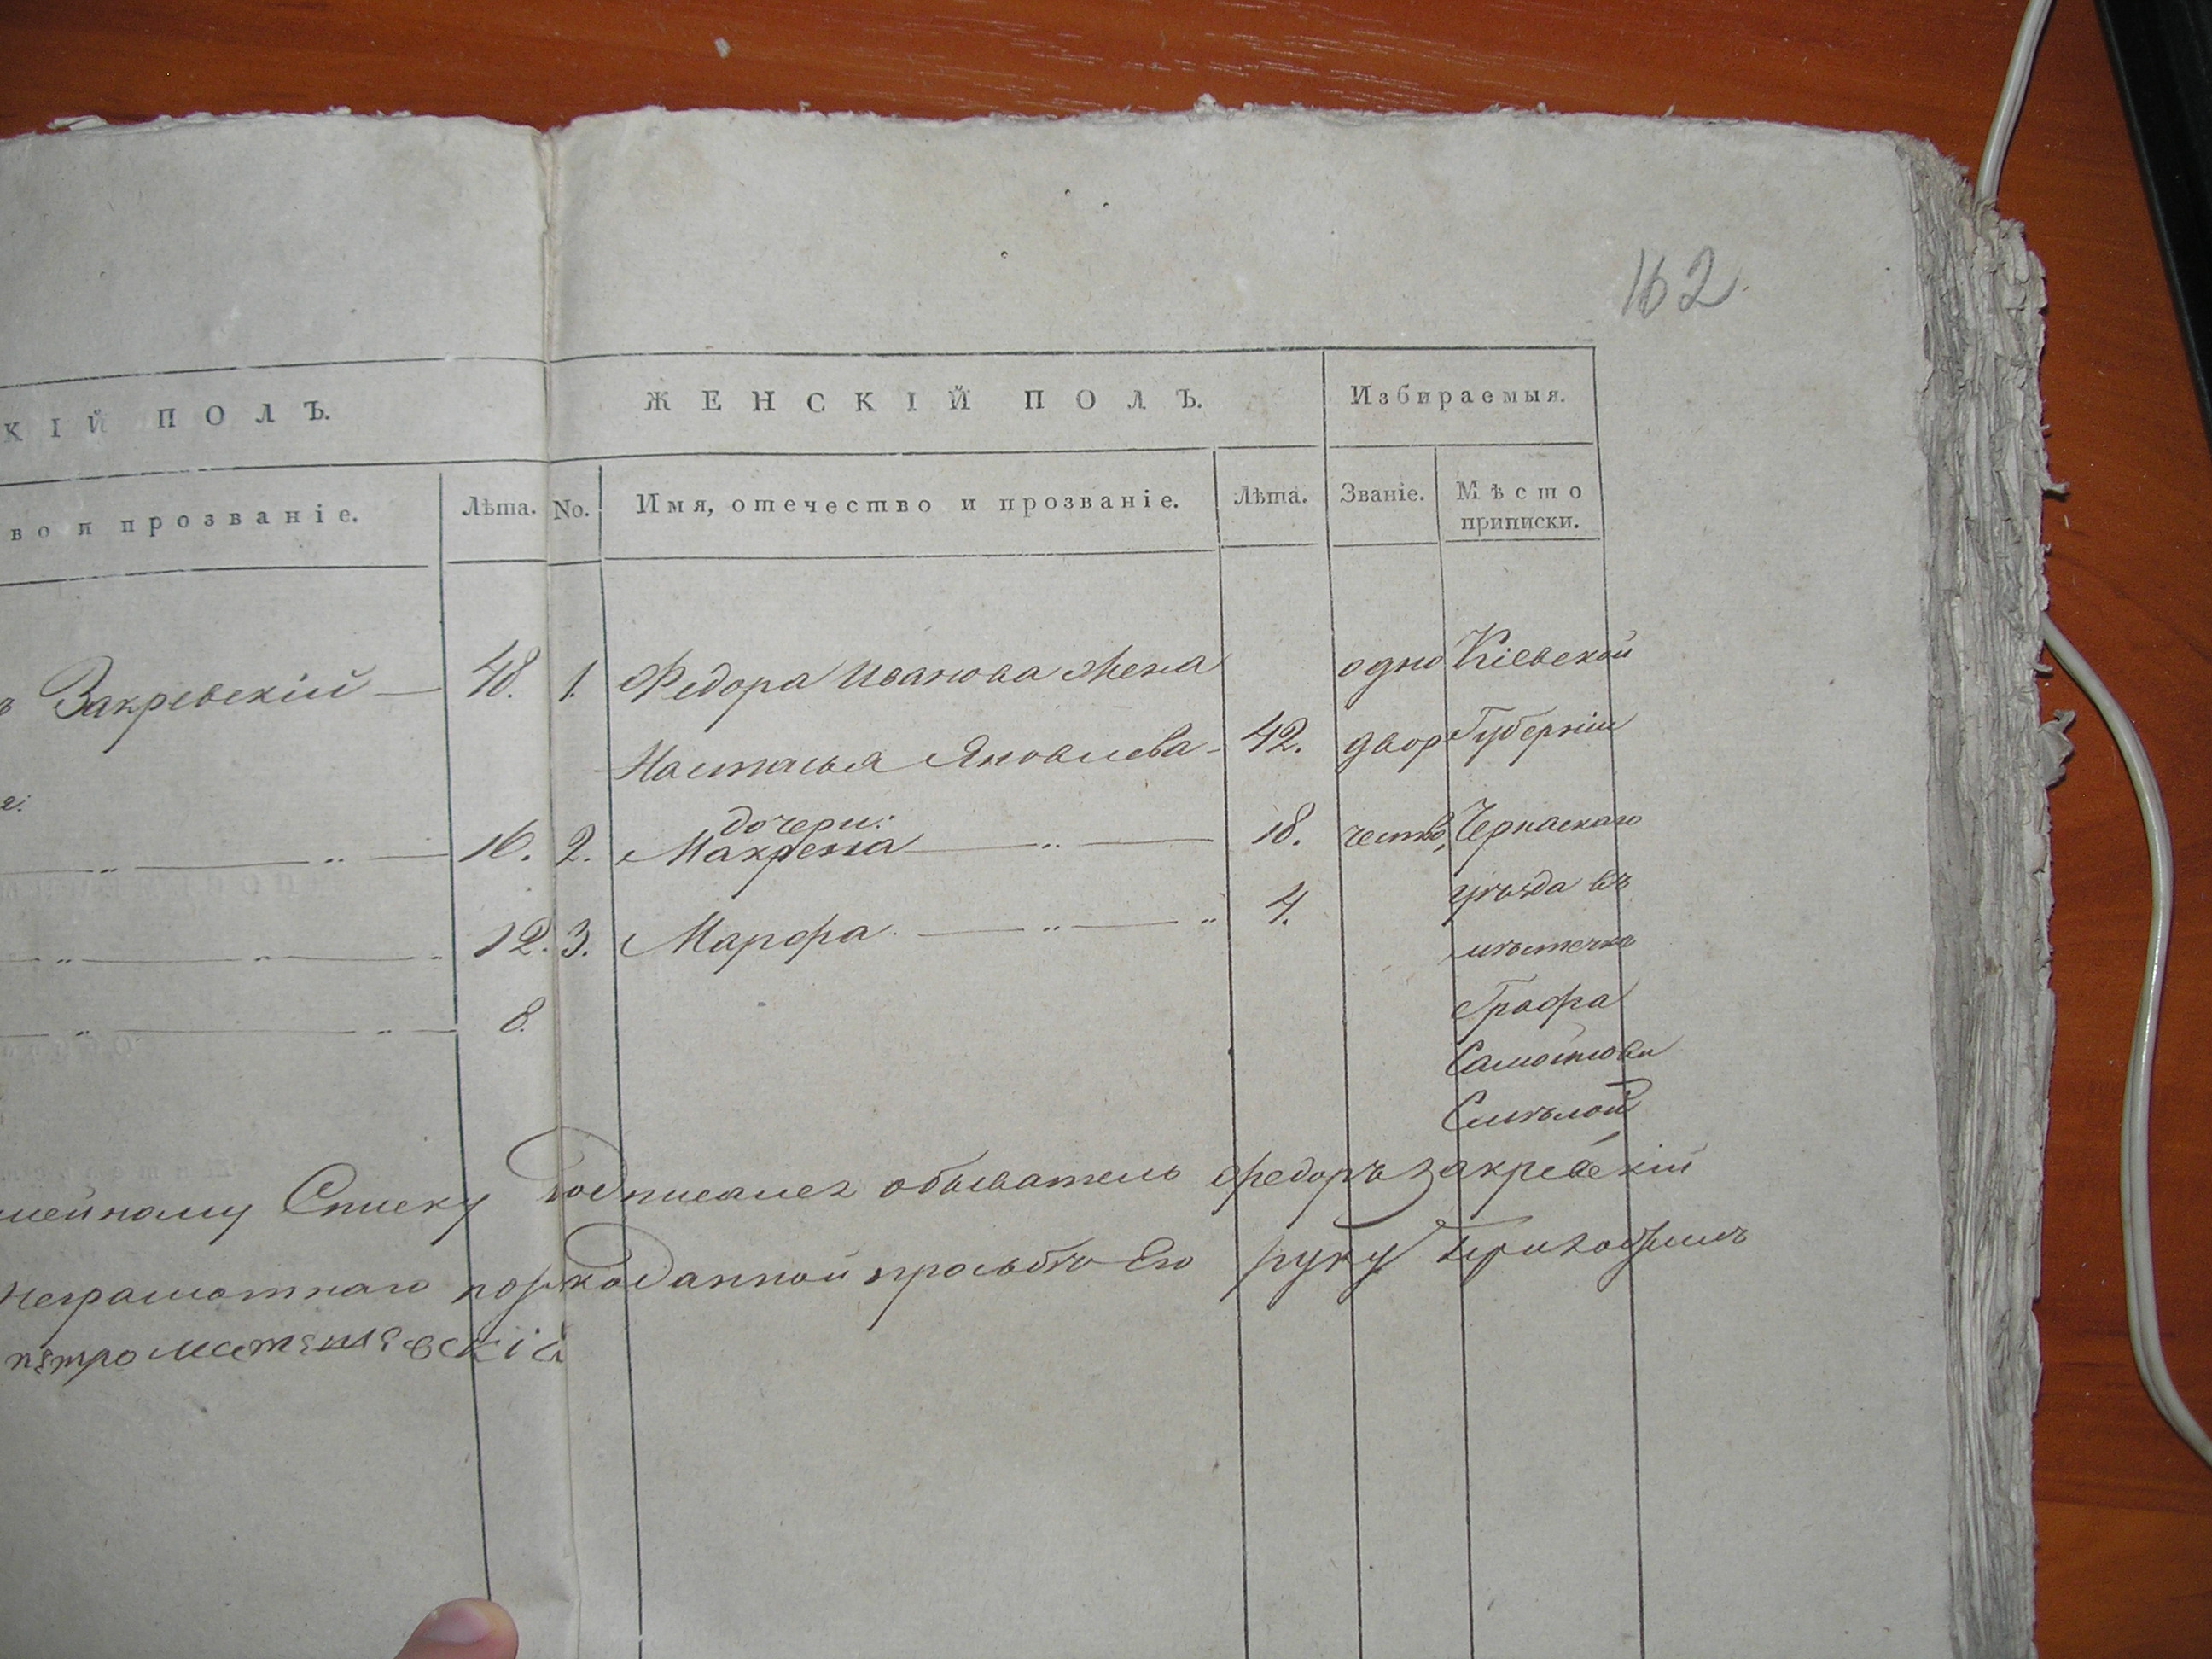 162.
КІЙ ПОЛЪ.
ЖЕНСКІЙ ПОЛЪ.
Избираемыя.
во и прозваніе.
Лѣта.
No.
Имя, отечество и прозваніе.
Лѣта.
Званіе.
Мѣсто
приписки.
ъ Закревскій — 48. 1. Федора Иванова жена одно Кіевской
Настасья Яковлева - 42. двор Губерніи
дочери:
16. 2. Макрена — „ — 18. чество, Черкаскаго
12. 3. Марфа — „ — „ 4. уѣзда въ
8. мѣстечкѣ
Графа
Самойлова
Смѣлой
мейному Списку подписался обыватель федоръ закревскій
неграмотнаго рукоданной прозьбѣ Его руку приложилъ
петро